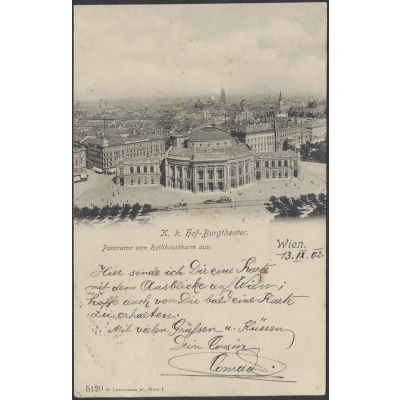 K. k. Hof-Burgtheater.
Panorama vom Rathhausthurm aus.
Wien.
13. IX. 02.
Hier sende ich Dir eine Karte
mit dem Ausblicke auf Wien;
hoffe auch von Dir bald eine Karte
zu erhalten.
Mit vielen Grüßen u. Küssen
Dein Cousin
Conrad
5120 C. Ledermann jr., Wien I.